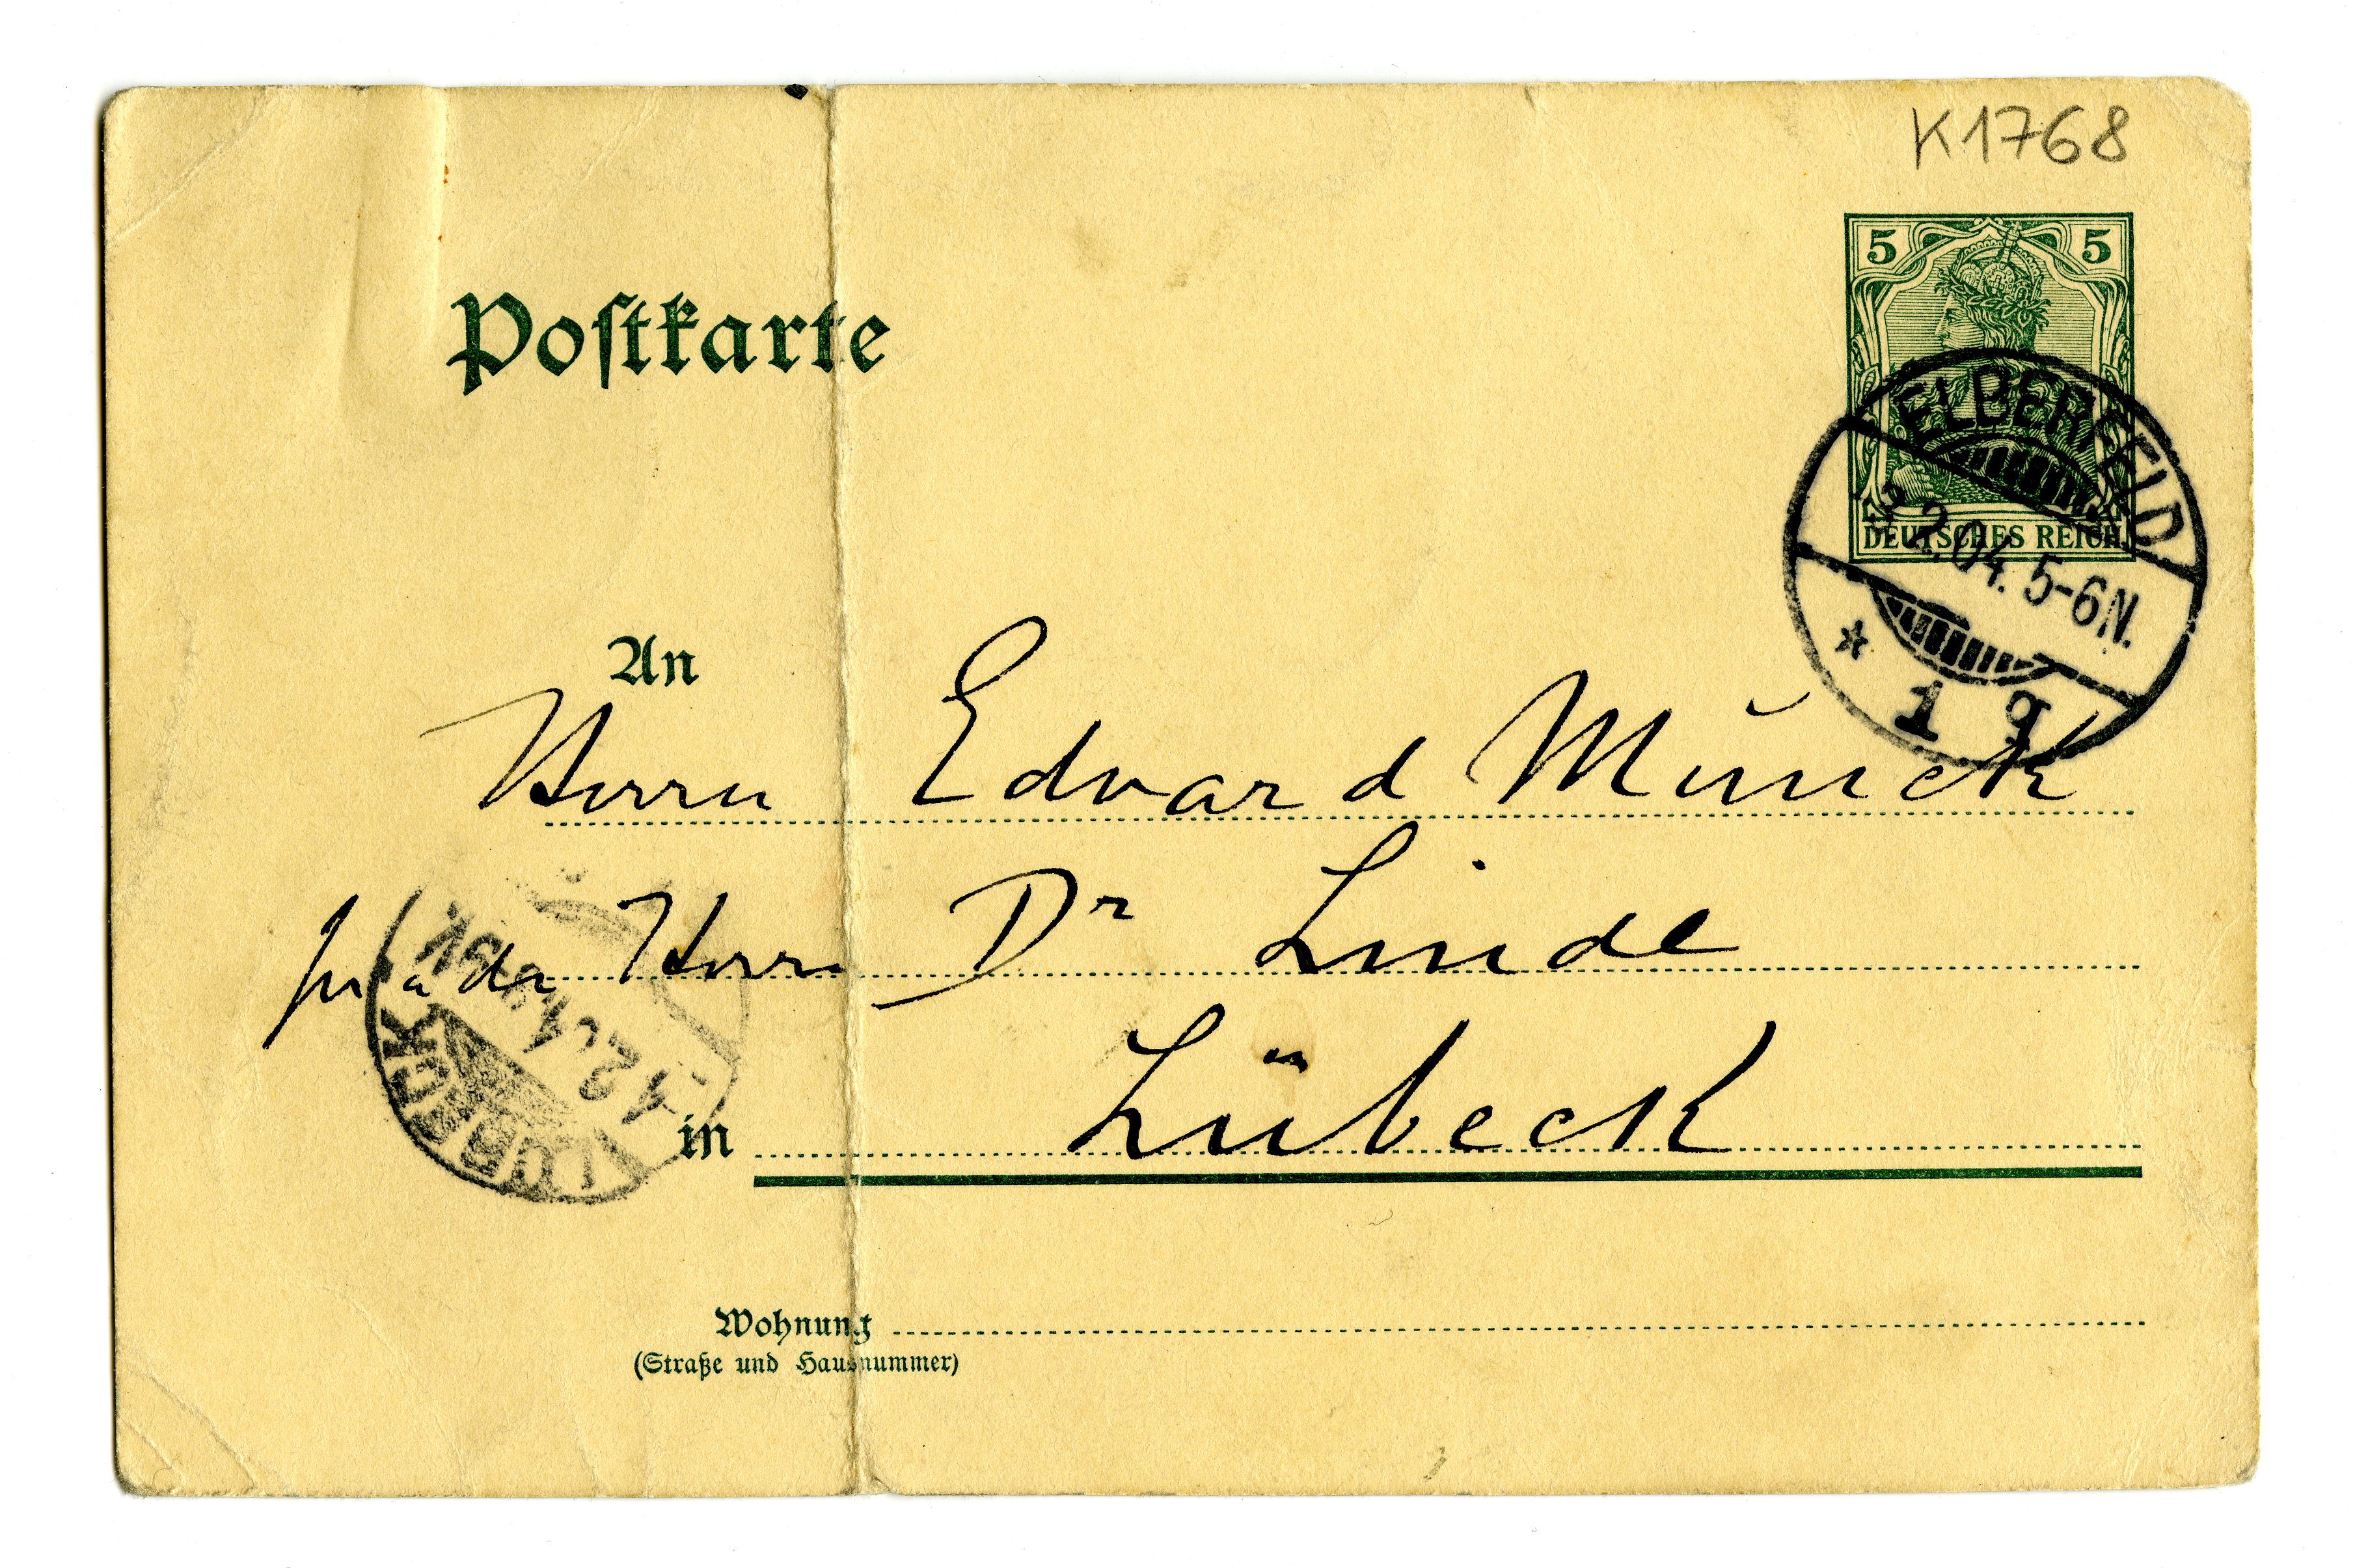 K1768
5 5
Postkarte
ELBERFELD
3.2.04. 5-6N.
DEUTSCHES REICH
* 1 g
An
Herrn Edvard Mŭnck
Herrn Dr Linde
LÜBECK
in Lübeck
Wohnung
(Straße und Hausnummer)